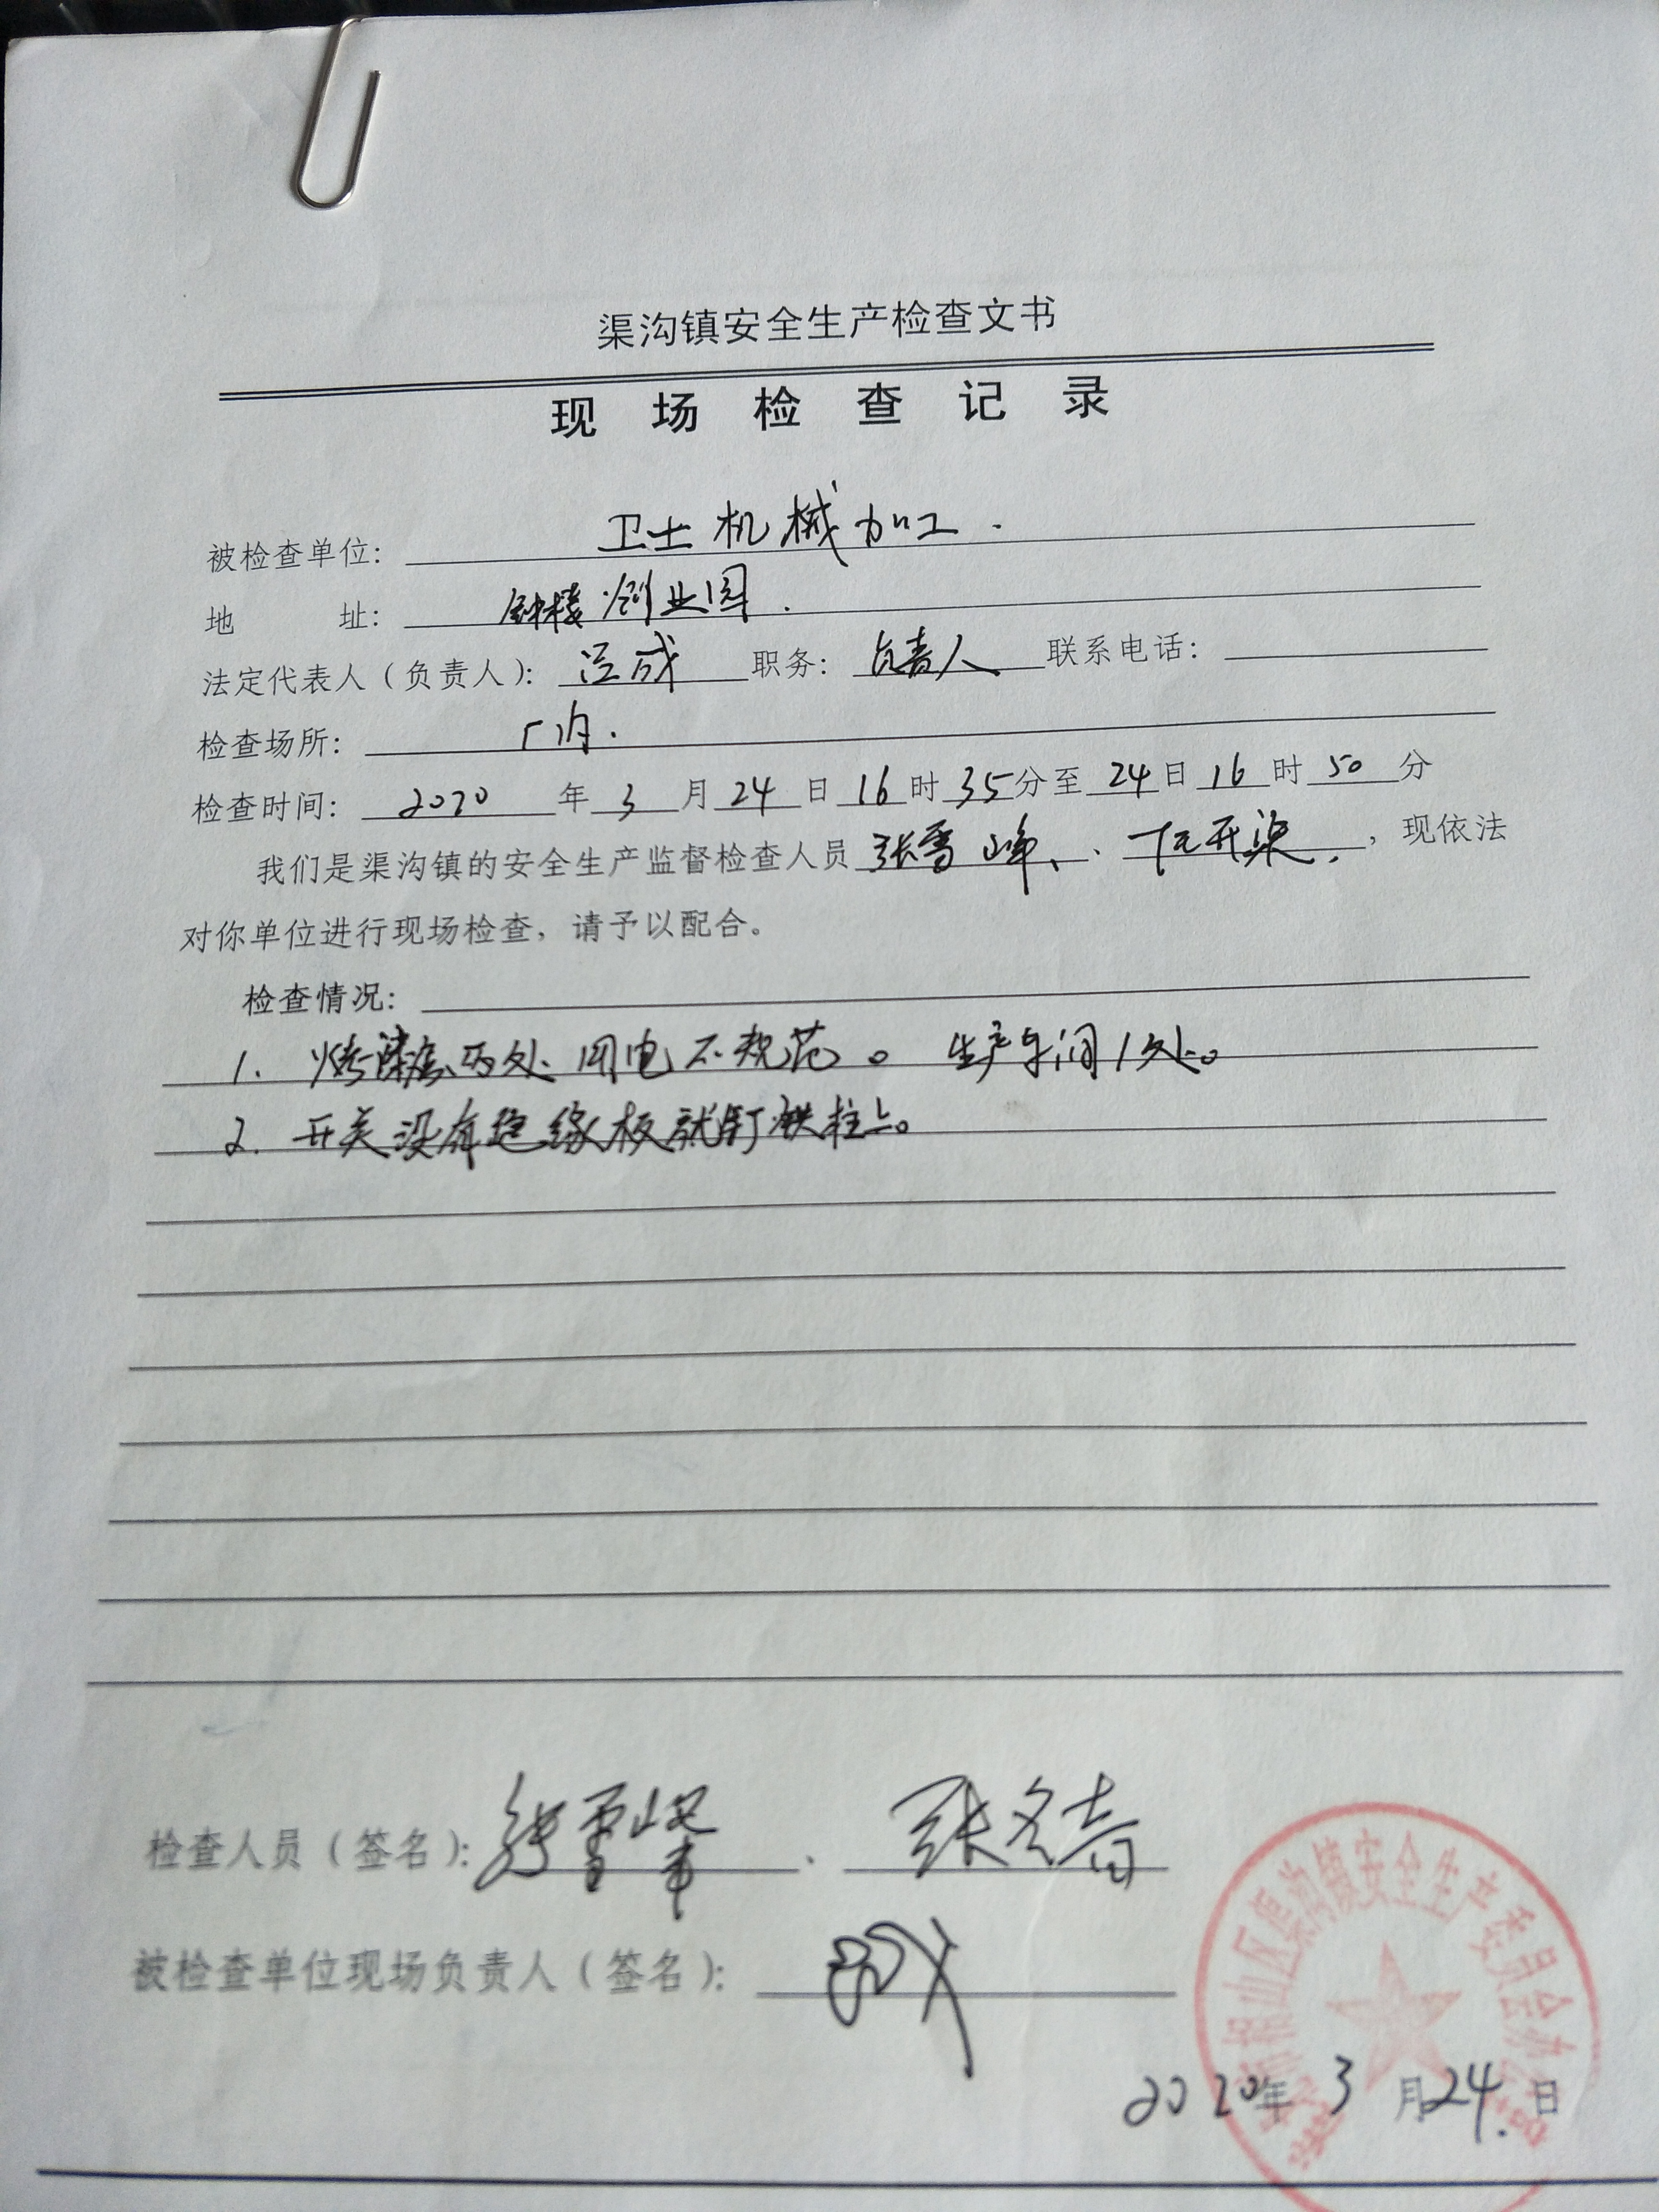 渠沟镇安全生产检查文书
现场检查记录
被检查单位: 卫士机械加工.
地 址: 钟楼创业园.
法定代表人（负责人）: 成 职务: 负责人 联系电话:
检查场所: 厂内.
检查时间: 2020 年 3 月 24 日 16 时 35 分至 24 日 16 时 50 分
我们是渠沟镇的安全生产监督检查人员 张雪峰、、 开染, ，现依法
对你单位进行现场检查，请予以配合。
检查情况:
1. 烤漆房两处用电不规范。 生产车间1处。
2. 开关没有绝缘板就钉铁柱上。
检查人员（签名）: 张雪峰 、 张
被检查单位现场负责人（签名）:
相山区渠沟镇安全生产委员会办公室
2020年 3 月24.日